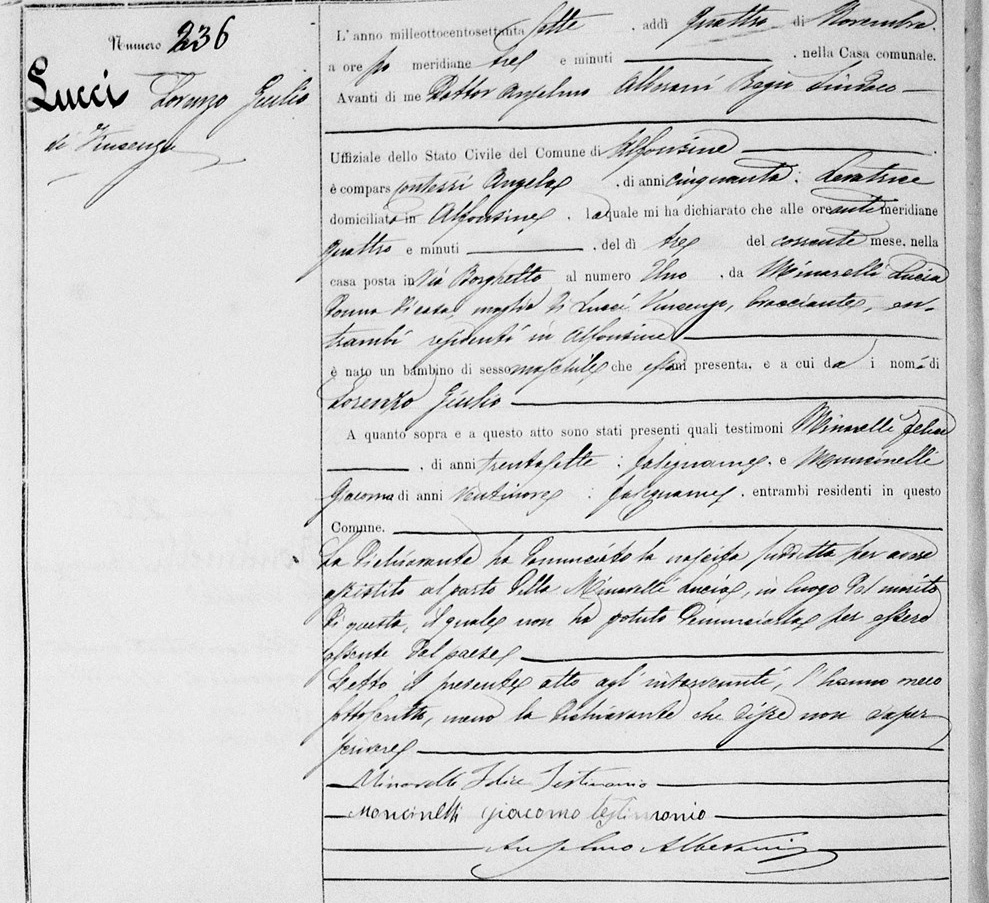 Numero 236
Lucci Lorenzo Giulio
di Vincenzo
L'anno milleottocentosettanta sette, addì quattro di Novembre,
a ore po meridiane tre e minuti, nella Casa comunale.
Avanti di me Dottor Anselmo Alberani Regio Sindaco
Uffiziale dello Stato Civile del Comune di Alfonsine
è compars Angela, di anni cinquanta, Levatrice
domiciliata in Alfonsine, la quale mi ha dichiarato che alle ore ante meridiane
quattro e minuti, del dì tre del corrente mese, nella
casa posta in Via Borghetto al numero Uno, da Minarelli Lucia
Donna di casa moglie di Lucci Vincenzo, bracciante, en-
trambi residenti in Alfonsine
è nato un bambino di sesso maschile che essa mi presenta, e a cui dà i nomi di
Lorenzo Giulio
A quanto sopra e a questo atto sono stati presenti quali testimoni Minarelli Felice
, di anni trentasette, falegname, e Moncinelli
Giacomo di anni ventinove, falegname, entrambi residenti in questo
Comune.
La dichiarante ha denunciato la nascita suddetta per avere
assistito al parto della Minarelli Lucia, in luogo del marito
di questa, il quale non ha potuto denunciarla per essere
assente dal paese
Letto il presente atto agl'intervenuti, l'hanno meco
sottoscritto, meno la dichiarante che disse non saper
scrivere
Minarelli Felice Testimonio
Moncinelli giacomo testimonio
Anselmo Alberani